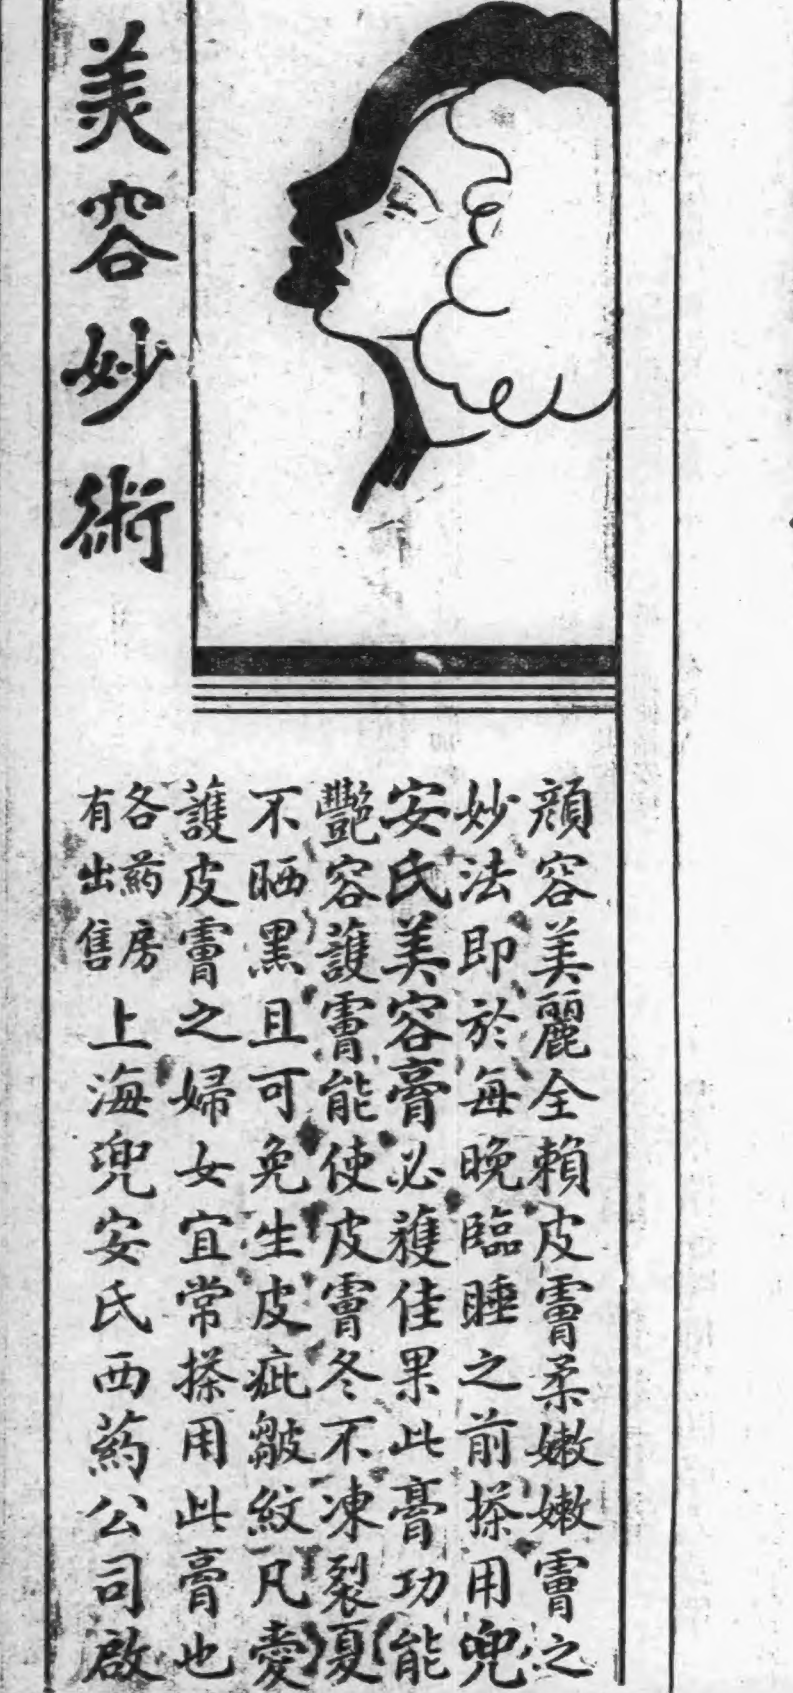 美容妙術
顏容美麗全賴皮膚柔嫩嫩膚之
妙法即於每晚臨睡之前搽用兜
安氏美容膏必獲佳果此膏功能
艷容護膚能使皮膚冬不凍裂夏
不晒黑且可免生皮疵皺紋凡愛
護皮膚之婦女宜常搽用此膏也
各葯房
有出售
上海兜安氏西葯公司啟